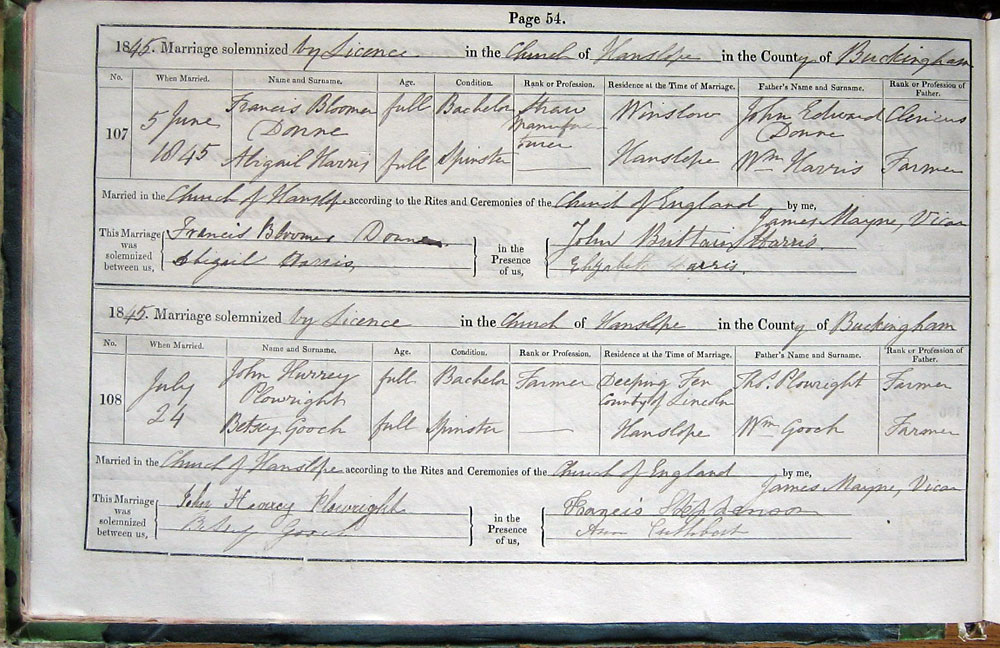 Page 54.
1845. Marriage solemnized by Licence in the Church of Hanslope in the County of Buckingham
No. When Married. Name and Surname. Age. Condition. Rank or Profession. Residence at the Time of Marriage. Father's Name and Surname. Rank or Profession of Father.
107 5 June 1845 Francis Bloomer Donne full Bachelor Straw Manufacturer Winslow John Edward Donne Clericus
Abigail Harris full Spinster — Hanslope Wm Harris Farmer
Married in the Church of Hanslope according to the Rites and Ceremonies of the Church of England by me,
James Mayne, Vicar
This Marriage was solemnized between us, Francis Bloomer Donne in the Presence of us, John Brittain Harris
Abigail Harris Elizabeth Harris
1845. Marriage solemnized by Licence in the Church of Hanslope in the County of Buckingham
No. When Married. Name and Surname. Age. Condition. Rank or Profession. Residence at the Time of Marriage. Father's Name and Surname. Rank or Profession of Father.
108 July 24 John Hurrey Plowright full Bachelor Farmer Deeping Fen County of Lincoln Thos. Plowright Farmer
Betsey Gooch full Spinster — Hanslope Wm Gooch Farmer
Married in the Church of Hanslope according to the Rites and Ceremonies of the Church of England by me,
James Mayne, Vicar
This Marriage was solemnized between us, John Plowright in the Presence of us, Francis Stephenson
Betsy Gooch Ann Cuthbert